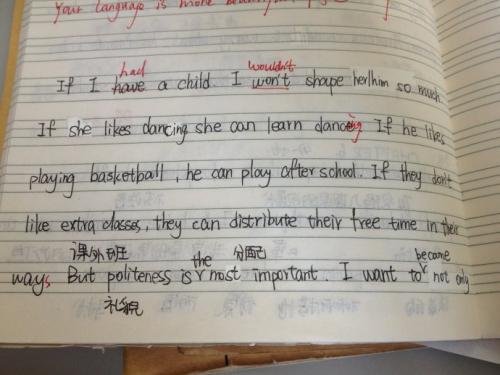 Your language is more beautiful
had wouldn't
If I have a child. I won't shape her/him so much.
If she likes dancing she can learn dancing If he likes
playing basketball, he can play after school. If they don't
like extra classes, they can distribute their free time in their
课外班 the 分配 become
ways. But politeness is most important. I want to not only
礼貌